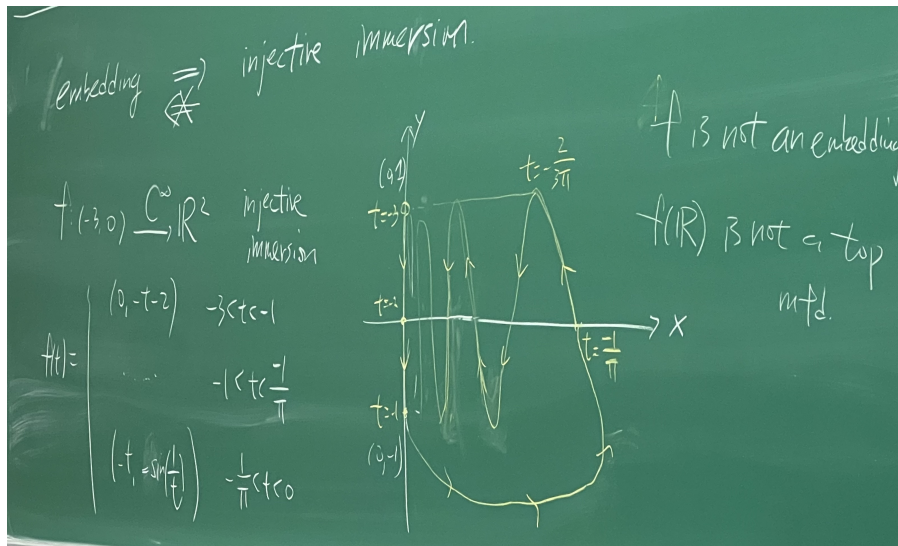 embedding ⇒ injective immersion.
⇍
f: (-3, 0) C^∞→ ℝ² injective
immersion
f(t) =
(0, -t-2) -3<t<-1
..... -1<t<-1/π
(-t, sin(1/t)) -1/π<t<0
y
(0,1)
t=-3
t=-2
t=-1
(0,-1)
t=-2/3π
t=-1/π
x
f is not an embedding
f(ℝ) is not a top
mfd.